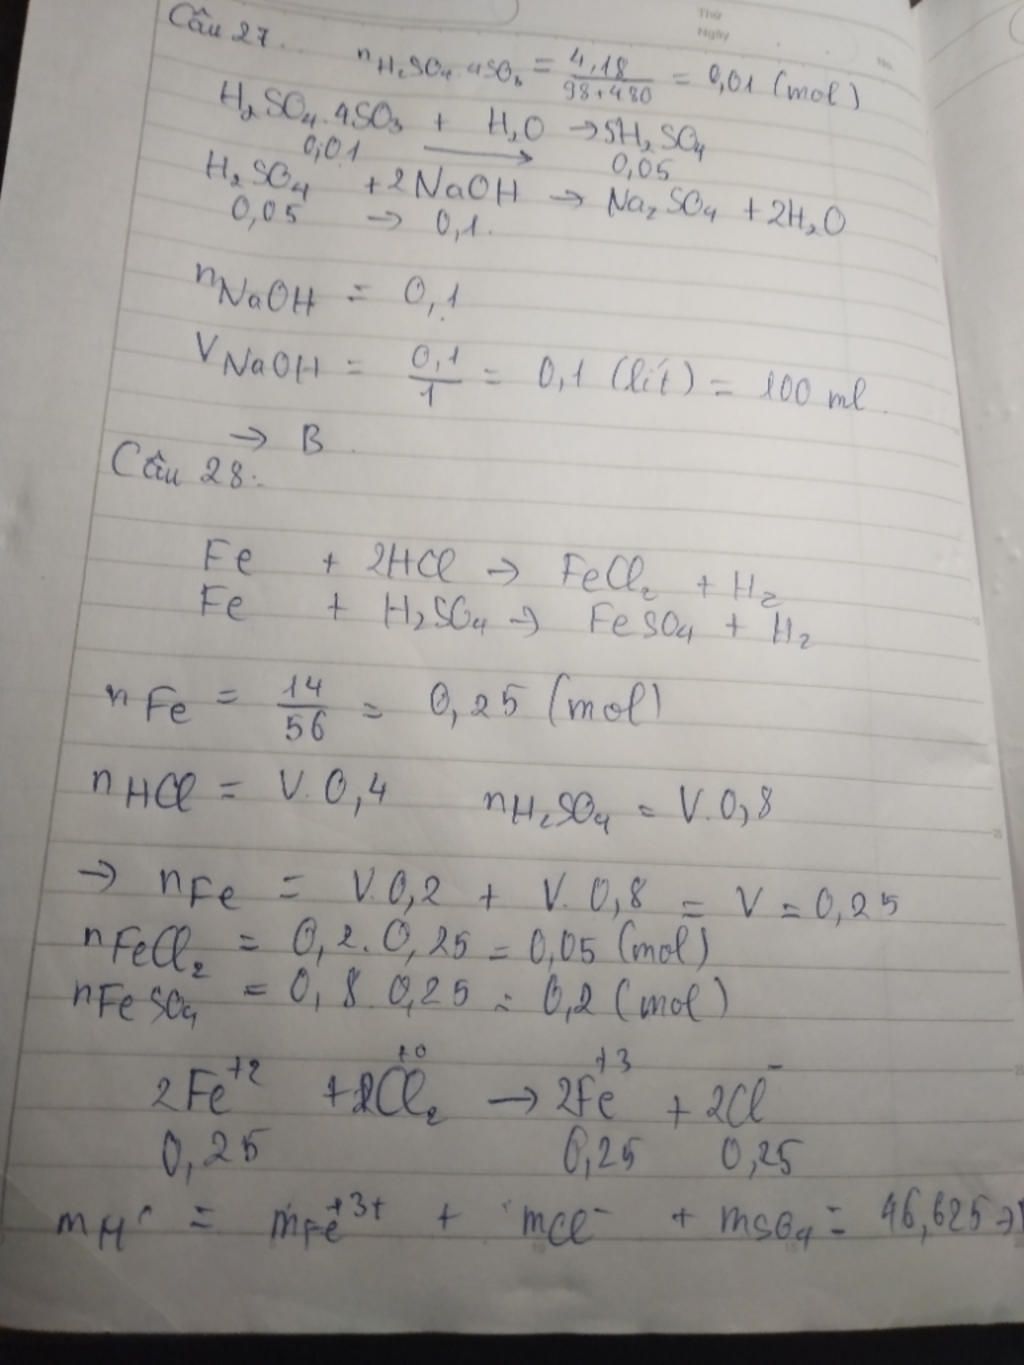 Thứ
Ngày
No.
Câu 27.
nH₂SO₄.4SO₃ = 4,18 / 98+480 = 0,01 (mol)
H₂SO₄.4SO₃ + H₂O → 5H₂SO₄
0,01 → 0,05
H₂SO₄ + 2NaOH → Na₂SO₄ + 2H₂O
0,05 → 0,1.
nNaOH = 0,1
VNaOH = 0,1 / 1 = 0,1 (lít) = 100 ml.
→ B.
Câu 28:
Fe + 2HCl → FeCl₂ + H₂
Fe + H₂SO₄ → FeSO₄ + H₂
nFe = 14 / 56 = 0,25 (mol)
nHCl = V.0,4 nH₂SO₄ = V.0,8
→ nFe = V.0,2 + V.0,8 = V = 0,25
nFeCl₂ = 0,2.0,25 = 0,05 (mol)
nFeSO₄ = 0,8.0,25 = 0,2 (mol)
2Fe⁺² + Cl₂⁺⁰ → 2Fe⁺³ + 2Cl⁻
0,25 0,25 0,25
mH' = mFe⁺³⁺ + mCl⁻ + mSO₄ = 46,625 →